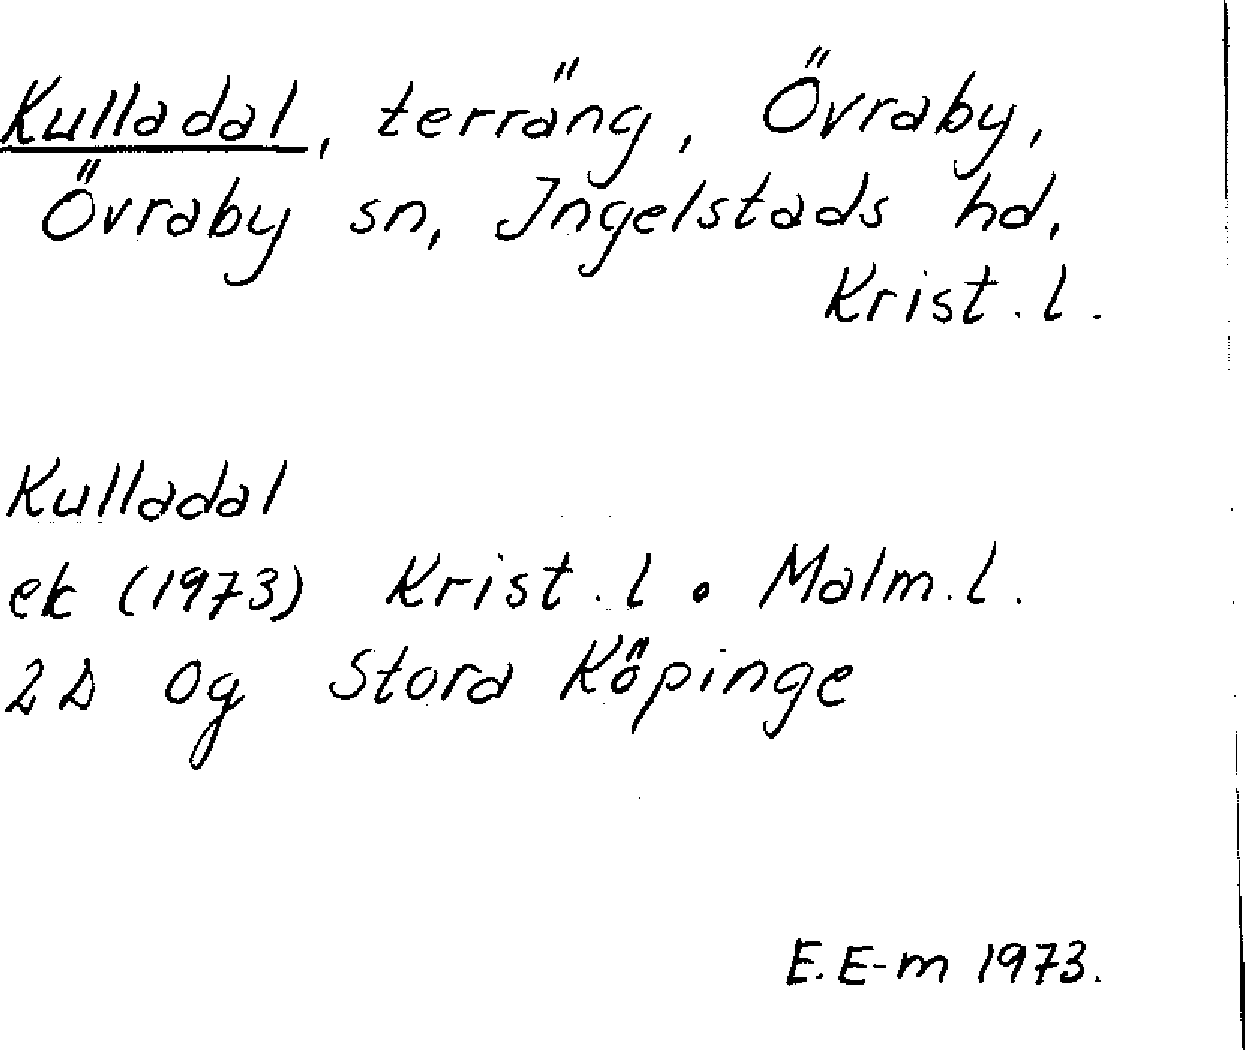 Kulladal, terräng, Övraby,
Övraby sn, Ingelstads hd,
Krist. l.
Kulladal
ek (1973) Krist. l o Malm. l.
2D 0g Stora Köpinge
E. E-m 1973.